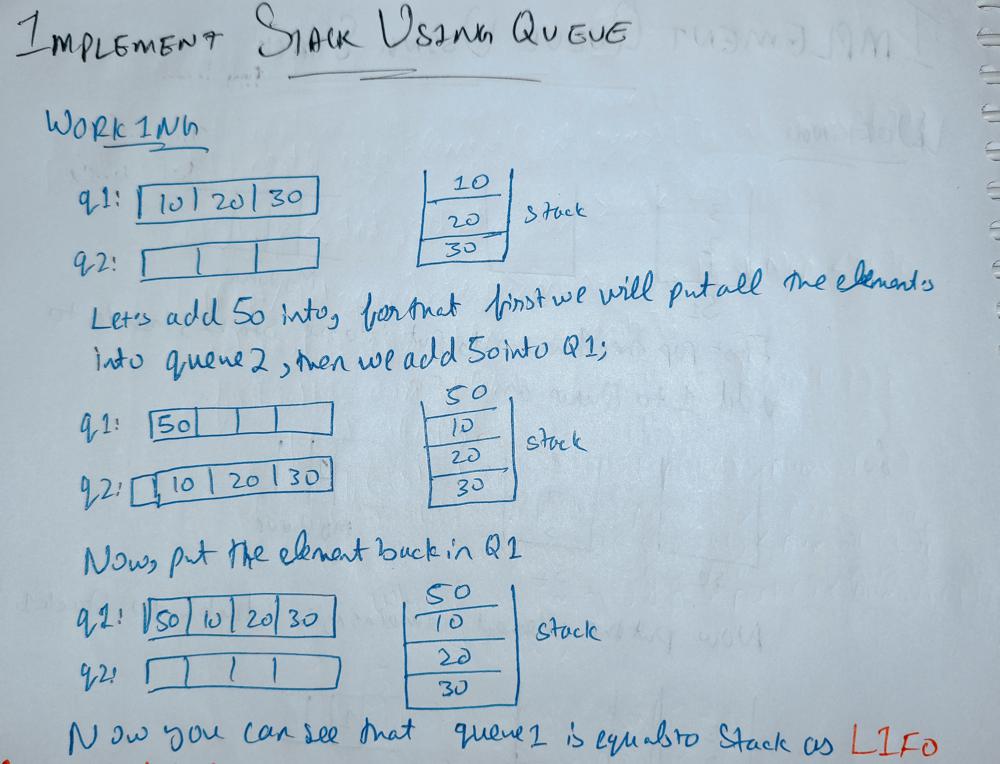 IMPLEMENT STACK USING QUEUE
WORKING
q1: 10 20 30
10
20
30
stack
q2:
Let's add 50 into, for that first we will put all the elements
into queue 2, then we add 50 into Q1;
q1: 50
q2: 10 20 30
50
10
20
30
stack
Now, put the element back in Q1
q1: 50 10 20 30
q2:
50
10
20
30
stack
Now you can see that queue1 is equals to Stack as LIFO